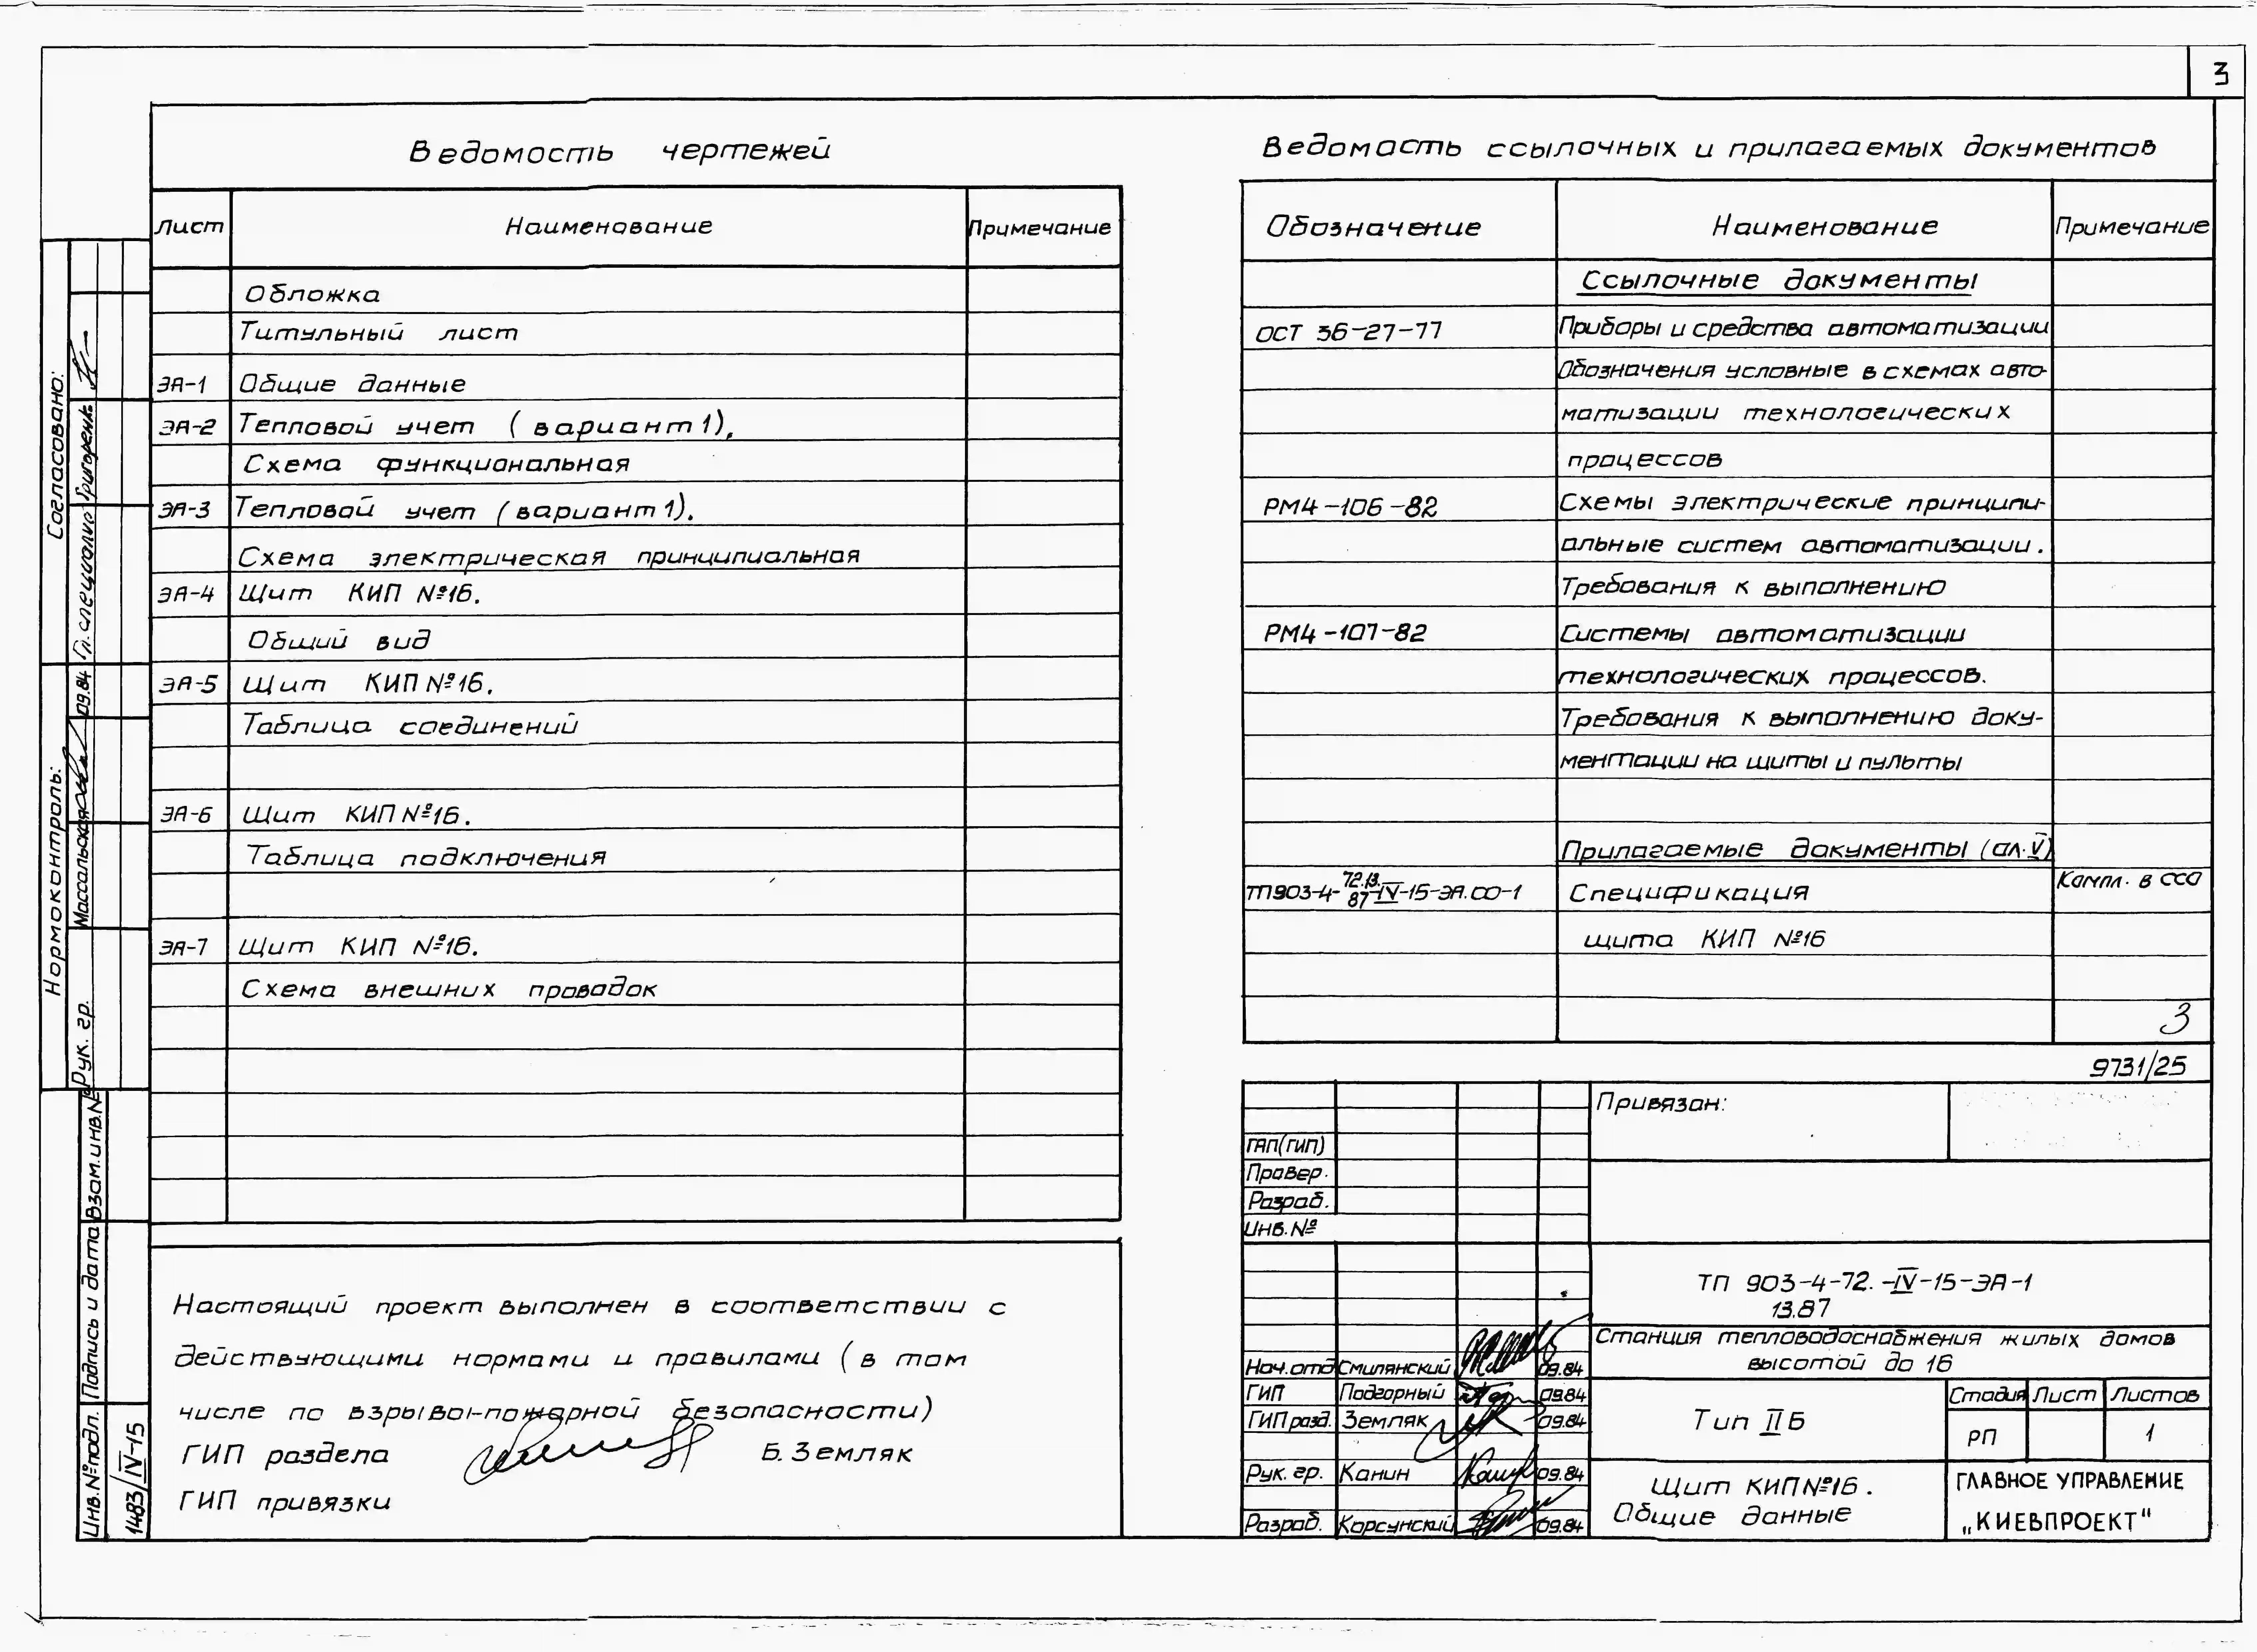 3
Ведомость чертежей
Лист Наименование Примечание
Обложка
Титульный лист
ЭА-1 Общие данные
ЭА-2 Тепловой учет (вариант 1),
Схема функциональная
ЭА-3 Тепловой учет (вариант 1).
Схема электрическая принципиальная
ЭА-4 Щит КИП №16.
Общий вид
ЭА-5 Щит КИП №16.
Таблица соединений
ЭА-6 Щит КИП №16.
Таблица подключения
ЭА-7 Щит КИП №16.
Схема внешних проводок
Настоящий проект выполнен в соответствии с
действующими нормами и правилами (в том
числе по взрыво-пожарной безопасности)
ГИП раздела Б. Земляк
ГИП привязки
Ведомость ссылочных и прилагаемых документов
Обозначение Наименование Примечание
Ссылочные документы
ОСТ 36-27-77 Приборы и средства автоматизации
Обозначения условные в схемах авто-
матизации технологических
процессов
РМ4-106-82 Схемы электрические принципи-
альные систем автоматизации.
Требования к выполнению
РМ4-107-82 Системы автоматизации
технологических процессов.
Требования к выполнению доку-
ментации на щиты и пульты
Прилагаемые документы (ал. V)
ТП903-4-72.13.87-IV-15-ЭА.СО-1 Спецификация Компл. в ССО
щита КИП №16
3
9731/25
Привязан:
ГАП(ГИП)
Провер.
Разраб.
Инв. №
ТП 903-4-72.-IV-15-ЭА-1
13.87
Станция тепловодоснабжения жилых домов
высотой до 16
Нач.отд Смилянский 09.84
ГИП Подгорный 09.84
ГИП разд. Земляк 09.84
Рук. гр. Канин 09.84
Разраб. Корсунский 09.84
Тип II Б
Стадия Лист Листов
РП 1
Щит КИП №16.
Общие данные
ГЛАВНОЕ УПРАВЛЕНИЕ
„КИЕВПРОЕКТ"
Согласовано:
Гл. специалис Григоренко
Нормоконтроль:
Рук. гр. Массальская 09.84
Взам.инв.№
Подпись и дата
Инв.№ подл.
1483/IV-15